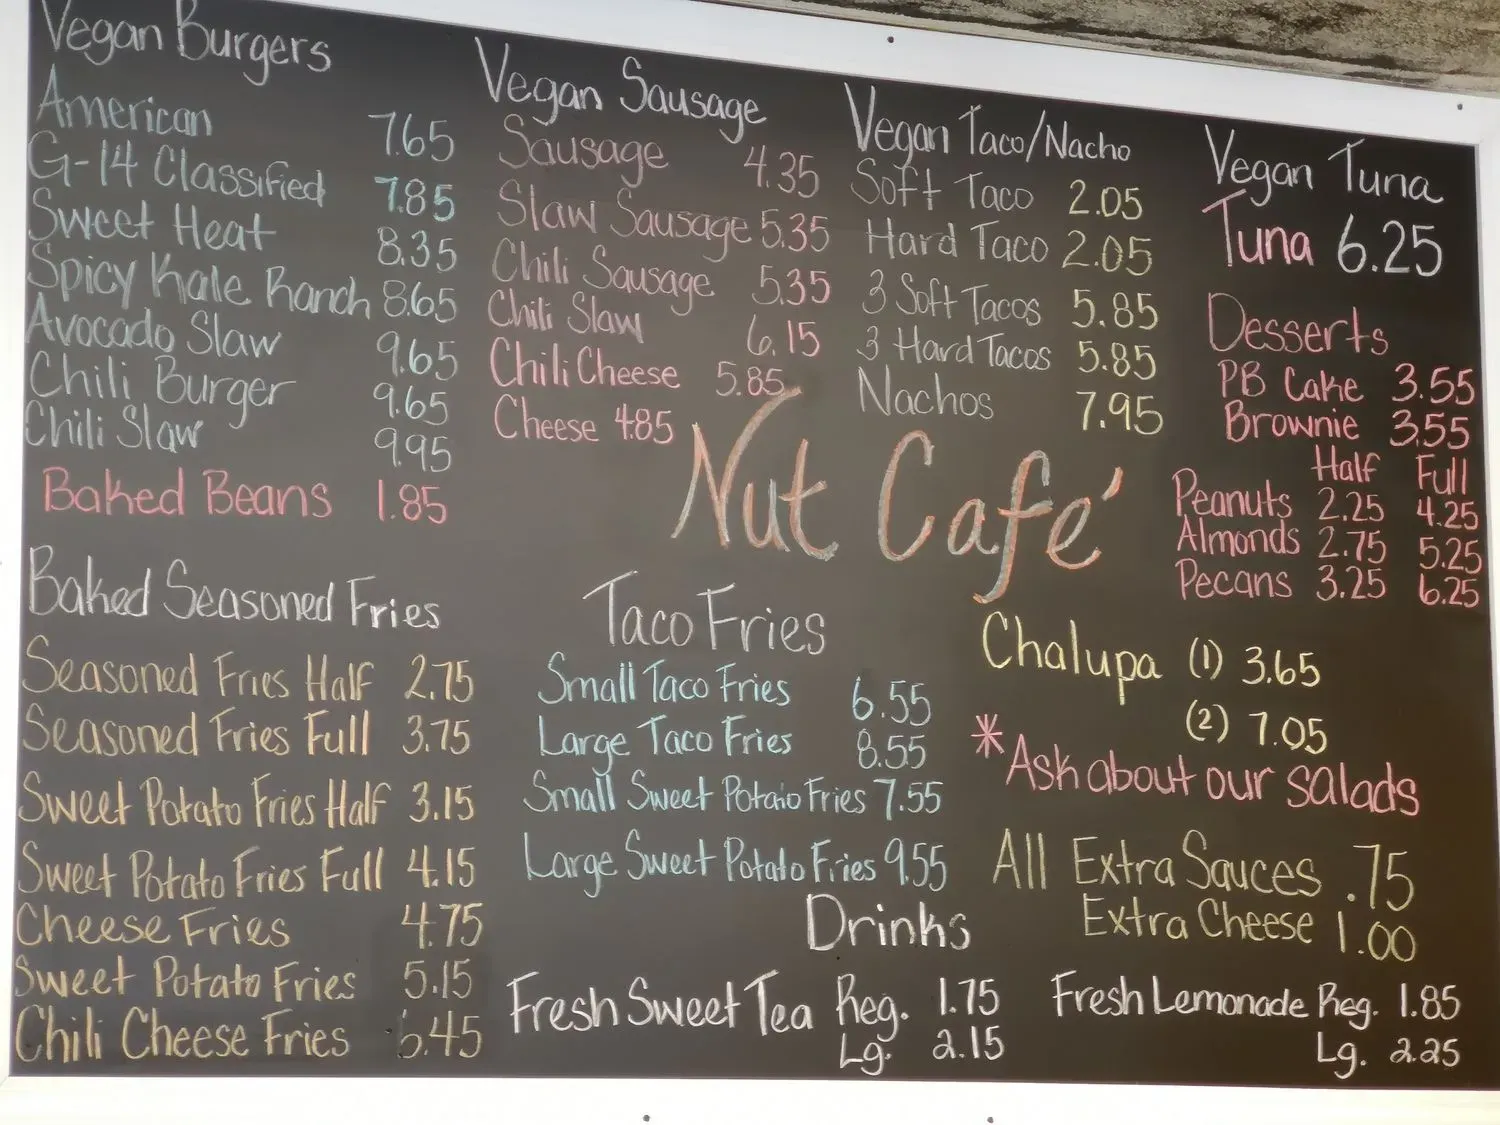 Vegan Burgers
American 7.65
G-14 Classified 7.85
Sweet Heat 8.35
Spicy Kale Ranch 8.65
Avocado Slaw 9.65
Chili Burger 9.65
Chili Slaw 9.95
Baked Beans 1.85
Vegan Sausage
Sausage 4.35
Slaw Sausage 5.35
Chili Sausage 5.35
Chili Slaw 6.15
Chili Cheese 5.85
Cheese 4.85
Vegan Taco/Nacho
Soft Taco 2.05
Hard Taco 2.05
3 Soft Tacos 5.85
3 Hard Tacos 5.85
Nachos 7.95
Vegan Tuna
Tuna 6.25
Desserts
PB Cake 3.55
Brownie 3.55
Half Full
Peanuts 2.25 4.25
Almonds 2.75 5.25
Pecans 3.25 6.25
Nut Café
Baked Seasoned Fries
Seasoned Fries Half 2.75
Seasoned Fries Full 3.75
Sweet Potato Fries Half 3.15
Sweet Potato Fries Full 4.15
Cheese Fries 4.75
Sweet Potato Fries 5.15
Chili Cheese Fries 6.45
Taco Fries
Small Taco Fries 6.55
Large Taco Fries 8.55
Small Sweet Potato Fries 7.55
Large Sweet Potato Fries 9.55
Chalupa (1) 3.65
(2) 7.05
*Ask about our salads
All Extra Sauces .75
Extra Cheese 1.00
Drinks
Fresh Sweet Tea Reg. 1.75
Lg. 2.15
Fresh Lemonade Reg. 1.85
Lg. 2.25